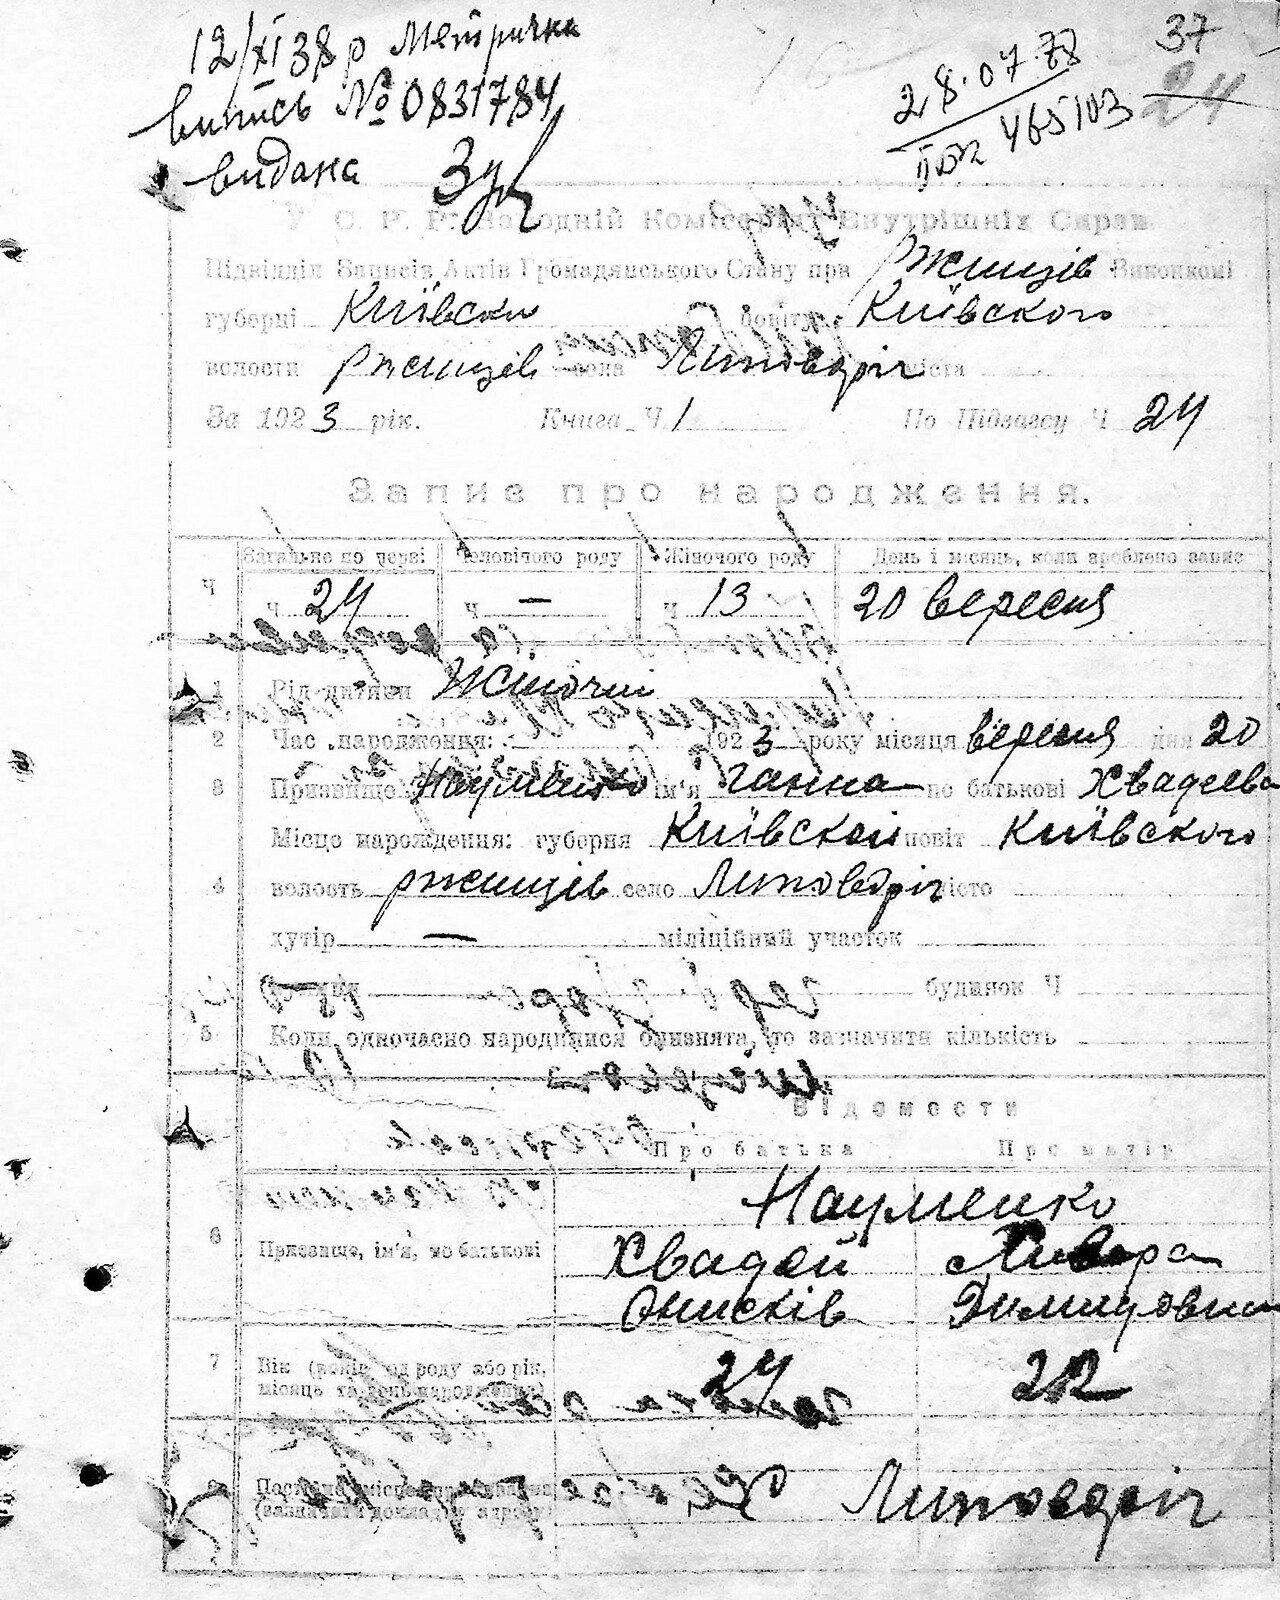 37
12/XI 38 р Метрична
випись № 0831784
видана
28.07.78
465103
24
У. С. Р. Р. Народній Комісаріят Внутрішніх Справ.
Підвідділ Записів Актів Громадянського Стану при Ржищів Виконкомі
губерні Київски повіту Київского
волости Ржищів села Липовбріг міста
За 1923 рік. Книга Ч 1 По Підзагсу Ч 24
Запис про народження.
Загальне по черзі Чоловічого роду Жіночого роду День і місяць, коли зроблено запис
Ч ч 24 ч — ч 13 20 вересня
1 Рід дитини Жіночий
2 Час народження: 1923 року місяця вересня дня 20
3 Призвище Науменко ім'я Ганна по батькові Хвадеева
Місце народження: губерня Київской повіт Київского
4 волость ржищів село Липовбріг місто
хутір — міліційний участок
будинок Ч
5 Коли одночасно народилися близнята, то зазначити кількість
Відомости
Про батька Про матір
Науменко
6 Призвище, ім'я, по батькові Хвадей
Онисків Димидовна
7 Вік (повні од роду або рік, 24 22
місяць та день народження)
Постійне місце проживання Липовбріг
(зазначити докладну адресу)